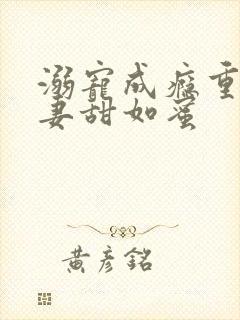 溺寵成癮重
妻甜如蜜
黃彥銘